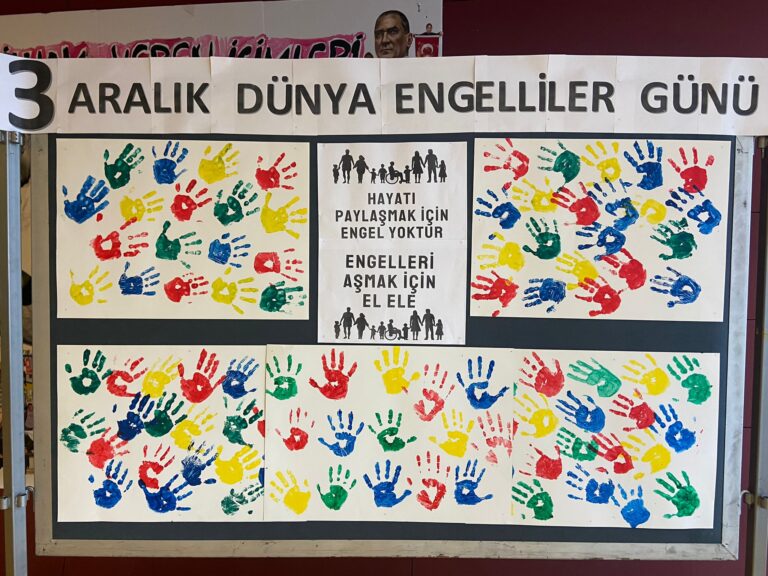 3 ARALIK DÜNYA ENGELLİLER GÜNÜ
HAYATI
PAYLAŞMAK İÇİN
ENGEL YOKTUR
ENGELLERİ
AŞMAK İÇİN
EL ELE